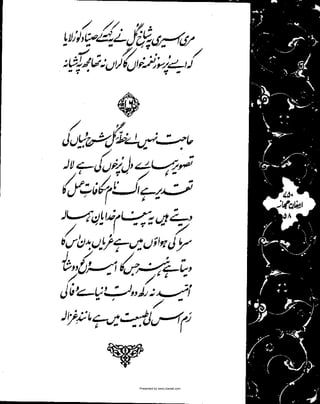 مری اسیری پہ شاخِ گل نے یہ کہہ کے صیّاد کو رُلایا
کہ ایسے پُرسوز نغمہ خواں کا گراں نہ تھا مجھ پہ آشیانہ
۱۶
حاجت نہیں اے خطّۂ گل شرح و بیاں کی
تصویر ہمارے دلِ پُرخوں کی ہے لالہ
تقدیر ہے اک نام مکافاتِ عمل کا
دیتے ہیں یہ پیغام خدایانِ ہمالہ
سرما کی ہواؤں میں ہے عریاں بدن اس کا
دیتا ہے ہنر جس کا امیروں کو دوشالہ
اُمّید نہ رکھ دولتِ دنیا سے وفا کی
رَم اس کی طبیعت میں ہے مانندِ غزالہ
۷۵۰
ارمغانِ حجاز
۵۸